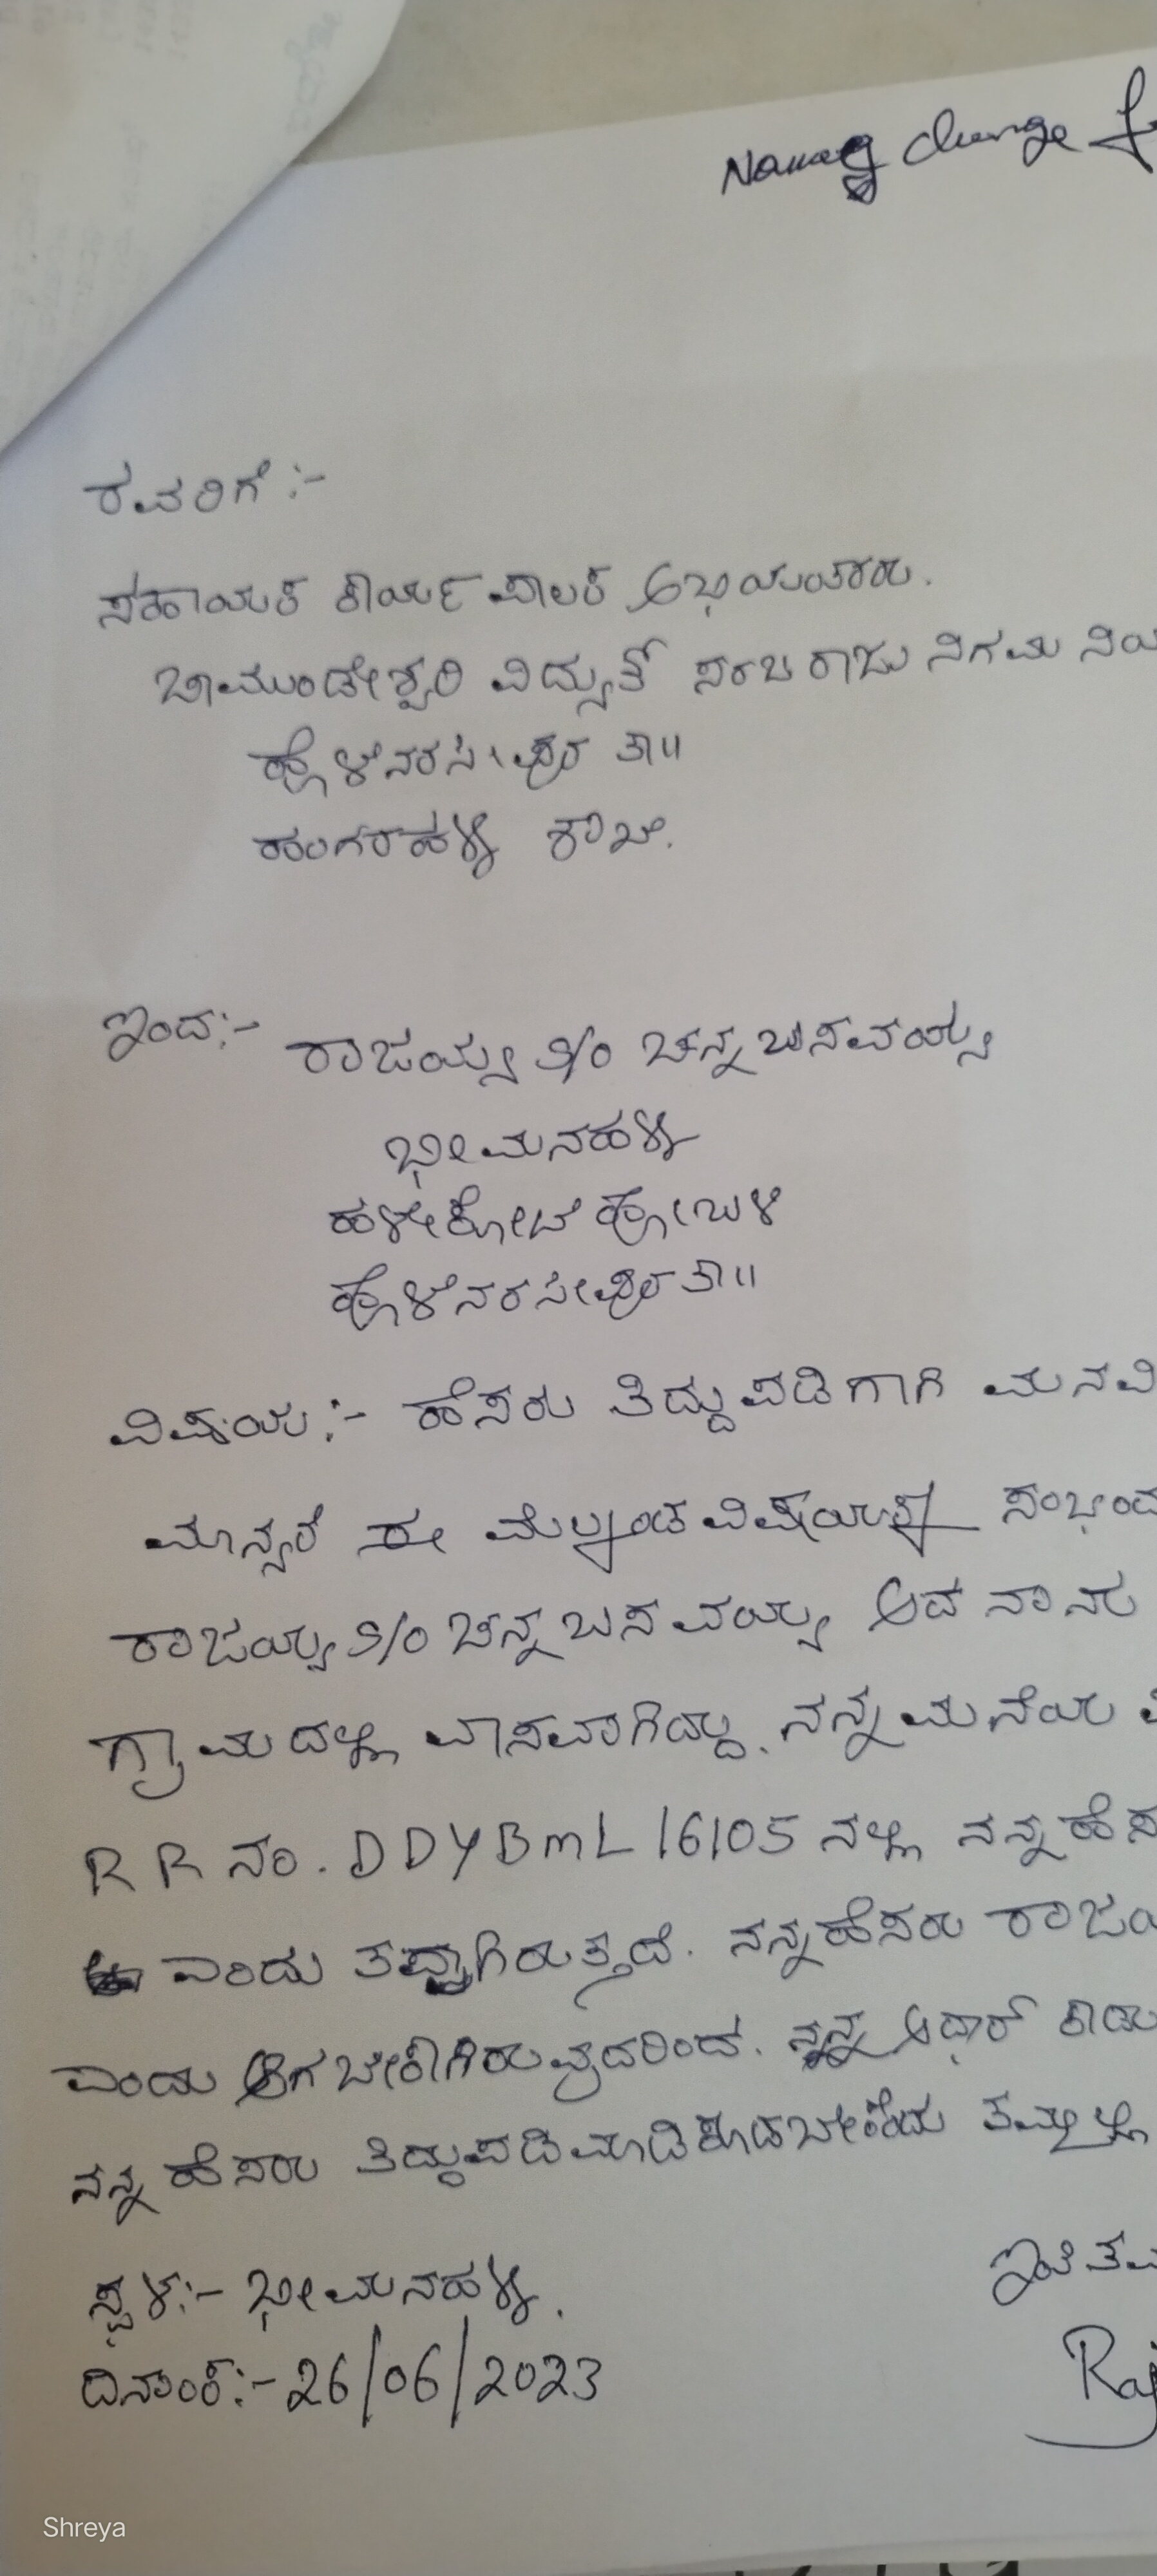 Name change
ರವರಿಗೆ :-
ಸಹಾಯಕ ಕಾರ್ಯಪಾಲಕ ಅಭಿಯಂತರರು.
ಚಾಮುಂಡೇಶ್ವರಿ ವಿದ್ಯುತ್ ಸರಬರಾಜು ನಿಗಮ
ಹೊಳೆನರಸೀಪುರ ತಾ॥
ಹಂಗರಹಳ್ಳಿ ಶಾಖೆ.
ಇಂದ:- ರಾಜಯ್ಯ S/O ಚನ್ನಬಸವಯ್ಯ
ಭೀಮನಹಳ್ಳಿ
ಹಳೇಕೋಟೆ ಹೋಬಳಿ
ಹೊಳೆನರಸೀಪುರ ತಾ॥
ವಿಷಯ:- ಹೆಸರು ತಿದ್ದುಪಡಿಗಾಗಿ ಮನವಿ
ಮಾನ್ಯರೆ ಈ ಮೇಲ್ಕಂಡ
ರಾಜಯ್ಯ S/O ಚನ್ನಬಸವಯ್ಯ ಆದ ನಾನು
ಗ್ರಾಮದಲ್ಲಿ ವಾಸವಾಗಿದ್ದು, ನನ್ನ ಮನೆಯ
R R ನಂ. DDYBML16105 ನಲ್ಲಿ ನನ್ನ ಹೆಸ
ಎಂದು ತಪ್ಪಾಗಿರುತ್ತದೆ. ನನ್ನ ಹೆಸರು ರಾಜಯ
ಎಂದು ಆಗಬೇಕಾಗಿರುವುದರಿಂದ. ನನ್ನ ಆಧಾರ್
ನನ್ನ ಹೆಸರು ತಿದ್ದುಪಡಿ ಮಾಡಿಕೊಡಬೇಕೆಂದು ತಮ್ಮಲ್ಲಿ
ಸ್ಥಳ:- ಭೀಮನಹಳ್ಳಿ.
ಇಂತಿ ತಮ
ದಿನಾಂಕ:- 26/06/2023
Raj
Shreya